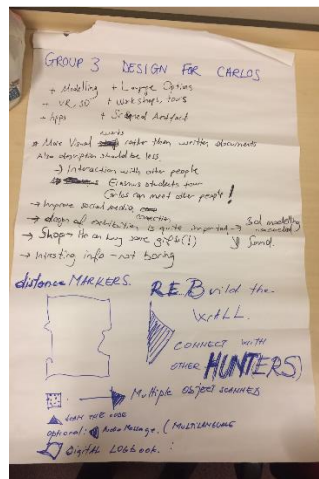 GROUP 3 DESIGN FOR CARLOS
+ Modelling + Language Options
- VR, 3D + workshops, tours
+ Apps + Scanned Artifact
events
* More Visual rather than written documents
Also description should be less.
→ Interaction with other people
Erasmus students tour
Carlos can meet other people!
→ Improve social media connection
→ of exhibition is quite important → 3d modelling
→ Shop - He can buy some gifts(!) Sound.
→ Intresting info - not boring
distance MARKERS.
R.E.Build the
WALL.
CONNECT WITH
OTHER HUNTERS)
→ Multiple object scanned
SCAN THE CODE
optional: Audio Message. (MULTILANGUAGE
Digital Logbook.